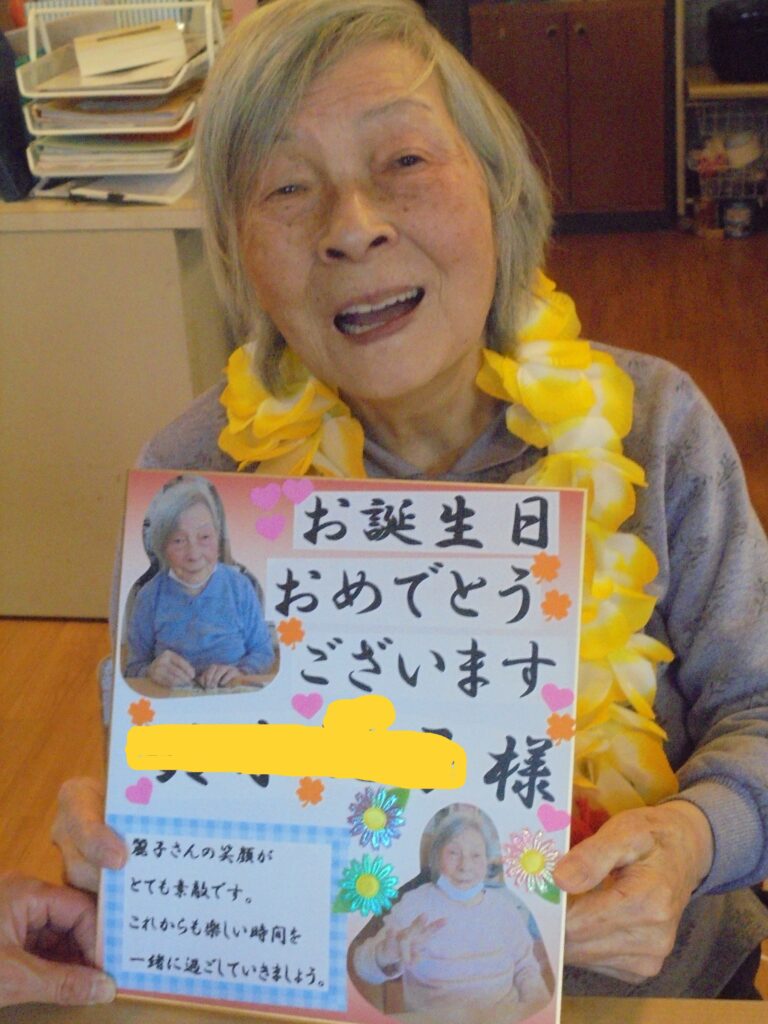 お誕生日
おめでとう
ございます
様
麗子さんの笑顔が
とても素敵です。
これからも楽しい時間を
一緒に過ごしていきましょう。